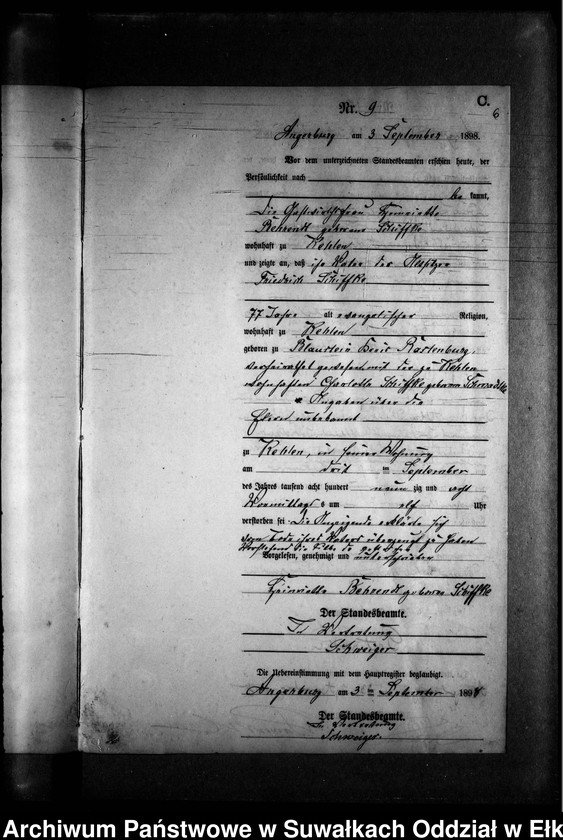 C.
6
Nr. 9
Angerburg am 3 September 1898.
Vor dem unterzeichneten Standesbeamten erschien heute, der
Persönlichkeit nach
be kannt,
die Gastwirthsfrau Henriette
Behrendt geborene Schiffke
wohnhaft zu Kehlen
und zeigte an, daß ihr Vater der Altsitzer
Friedrich Schiffke
77 Jahre alt evangelischer Religion,
wohnhaft zu Kehlen
geboren zu Blaustein Kreis Rastenburg,
verheirathet gewesen mit der zu Kehlen
wohnhaften Charlotte Schiffke geborene
Angaben über die
Eltern unbekannt
zu Kehlen, in seiner Wohnung
am drit ten September
des Jahres tausend acht hundert neun zig und acht
Vormittags um elf Uhr
verstorben sei. Die Anzeigende erklärte sich
vom Tode ihres Vaters überzeugt zu haben
Vorstehend die Silbe
Vorgelesen, genehmigt und unterschrieben
Henriette Behrendt geborene Schiffke
Der Standesbeamte.
In Vertretung
Schweiger
Die Uebereinstimmung mit dem Hauptregister beglaubigt.
Angerburg am 3 ten September 1898
Der Standesbeamte.
In Vertretung
Schweiger.
Archiwum Państwowe w Suwałkach Oddział w Ełk